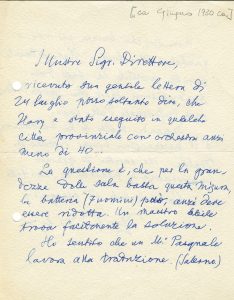 [ca Giugno 1980 ca]
Illustre Sigr. Direttore,
ricevuto sua gentile lettera di
24 luglio posso soltanto dire, che
è stato eseguito in qualche
città provinciale con orchestra anzi
meno di 40...
La questione è, che per la gran-
dezza della sala basta questa misura,
la batteria (7 uomini) anzi deve
essere ridotta. Un maestro abile
trova facilmente la soluzione.
Ho sentito che un Mº Pasquale
lavora alla traduzione. (Salerno)